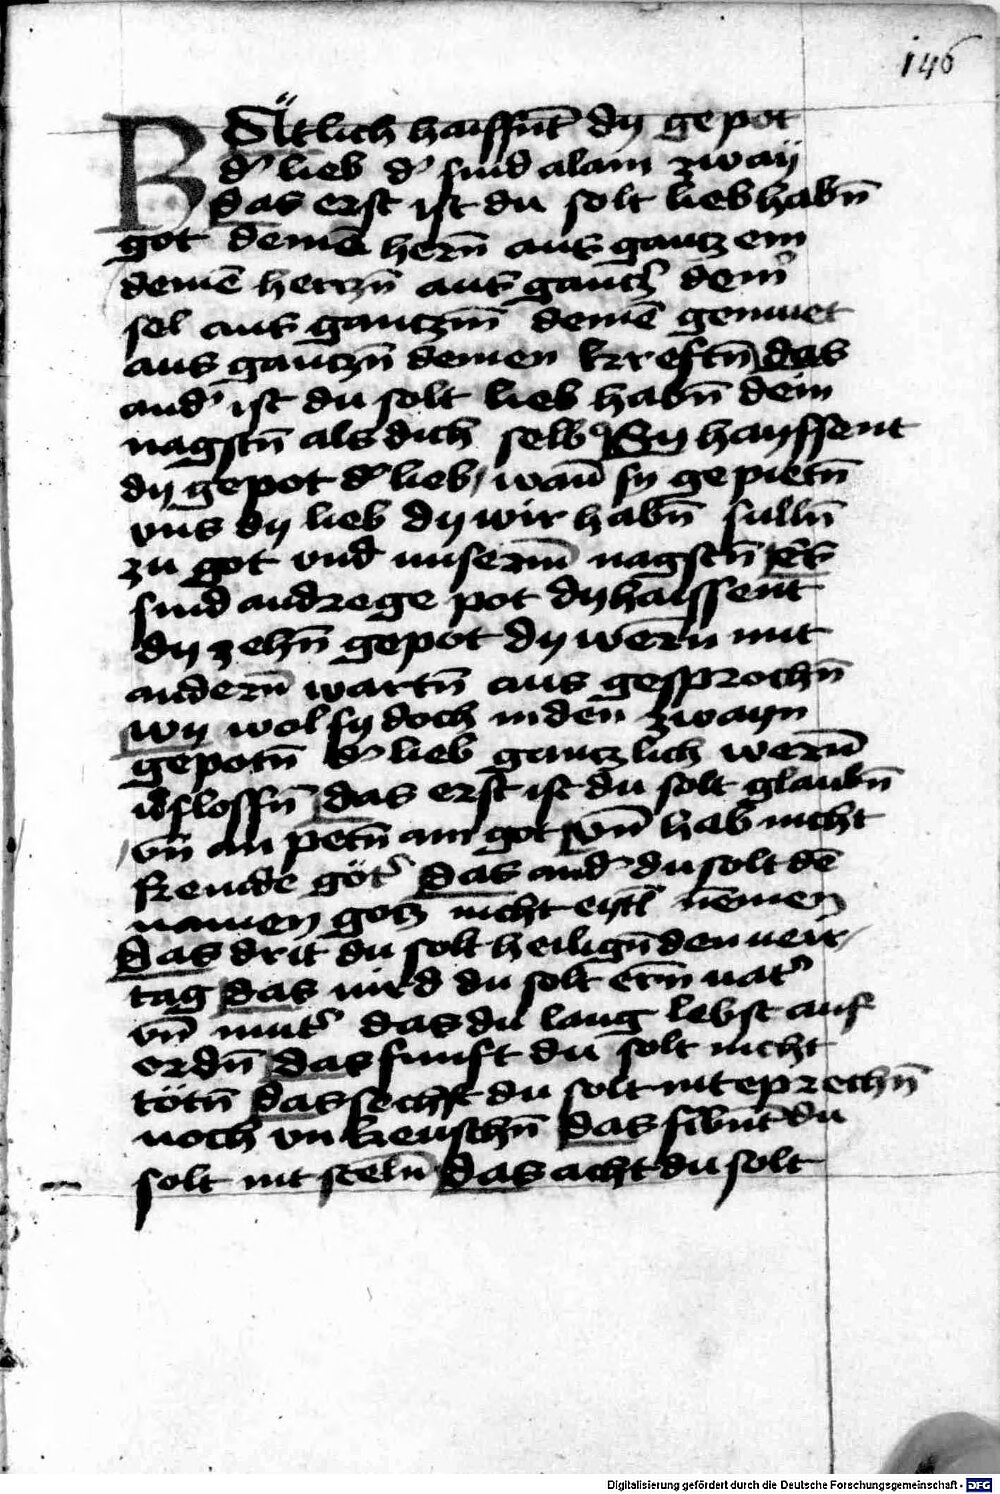 146
B Ätlich haissnt dy gepot
d' lieb d' sind alain zway
das erst ist du solt lieb habn̄
got deinē hern̄ aus gantzem
deinē hertzn̄ aus gantz' dein'
sel aus gantzm̄ deinē gemuet
aus gantzn̄ deinen kreftn̄ das
and' ist du solt lieb habn̄ dein
nagstn̄ als dich selb Sy hayssent
dy gepot d' lieb / wan̄ sy gepietn̄
vns dy lieb dy wir habn̄ sulln̄
zu got vnd unserm̄ nagstn̄ Es
sind andrege pot dy haissent
dy zehn̄ gepot dy wern̄ mit
andern̄ wartn̄ aus gesprochn̄
wy wol sy doch in den zwayn
gepotn̄ d' lieb gantzlich wern̄
das erst ist du solt glaubn̄
vn̄ an petn̄ ain got vn̄ hab nicht
fremde göt' das and' du solt dē
namen gotz nicht eytl nemen
Das drit du solt heilign̄ den veir /
tag das vird du solt ern̄ vat'
vn̄ mut' das du lang lebst auf
erdn̄ das funft du solt nicht
tötn̄ das sechst du solt nit eprechn̄
noch vnkeuschn̄ das sibnt du
solt nit steln̄ das acht du solt
Digitalisierung gefördert durch die Deutsche Forschungsgemeinschaft - DFG